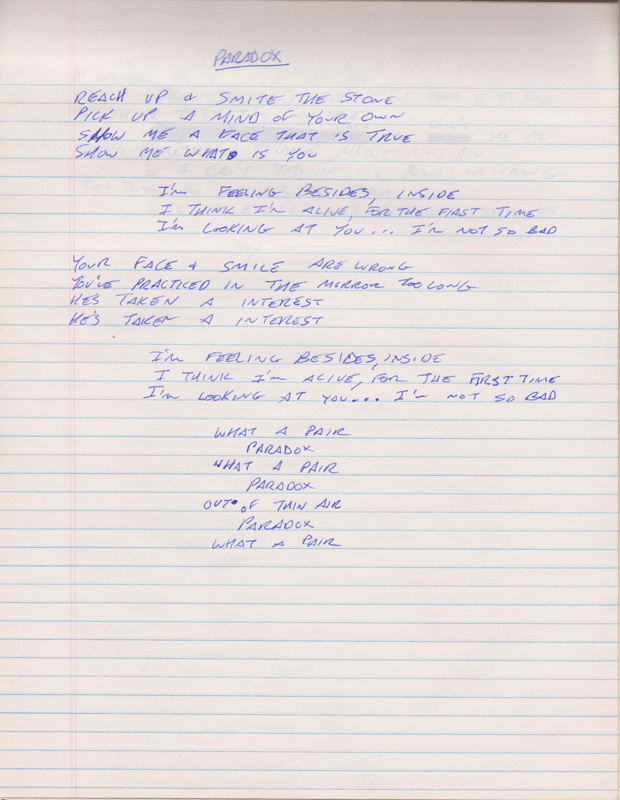 PARADOX
REACH UP & SMITE THE STONE
PICK UP A MIND OF YOUR OWN
SHOW ME A FACE THAT IS TRUE
SHOW ME WHAT IS YOU
I'm FEELING BESIDES, INSIDE
I THINK I'm ALIVE, FOR THE FIRST TIME
I'm LOOKING AT YOU... I'm NOT SO BAD
YOUR FACE & SMILE ARE WRONG
YOU'VE PRACTICED IN THE MIRROR TOO LONG
HE'S TAKEN A INTEREST
HE'S TAKEN A INTEREST
I'm FEELING BESIDES, INSIDE
I THINK I'm ALIVE, FOR THE FIRST TIME
I'm LOOKING AT YOU... I'm NOT SO BAD
WHAT A PAIR
PARADOX
WHAT A PAIR
PARADOX
OUT OF THIN AIR
PARADOX
WHAT A PAIR